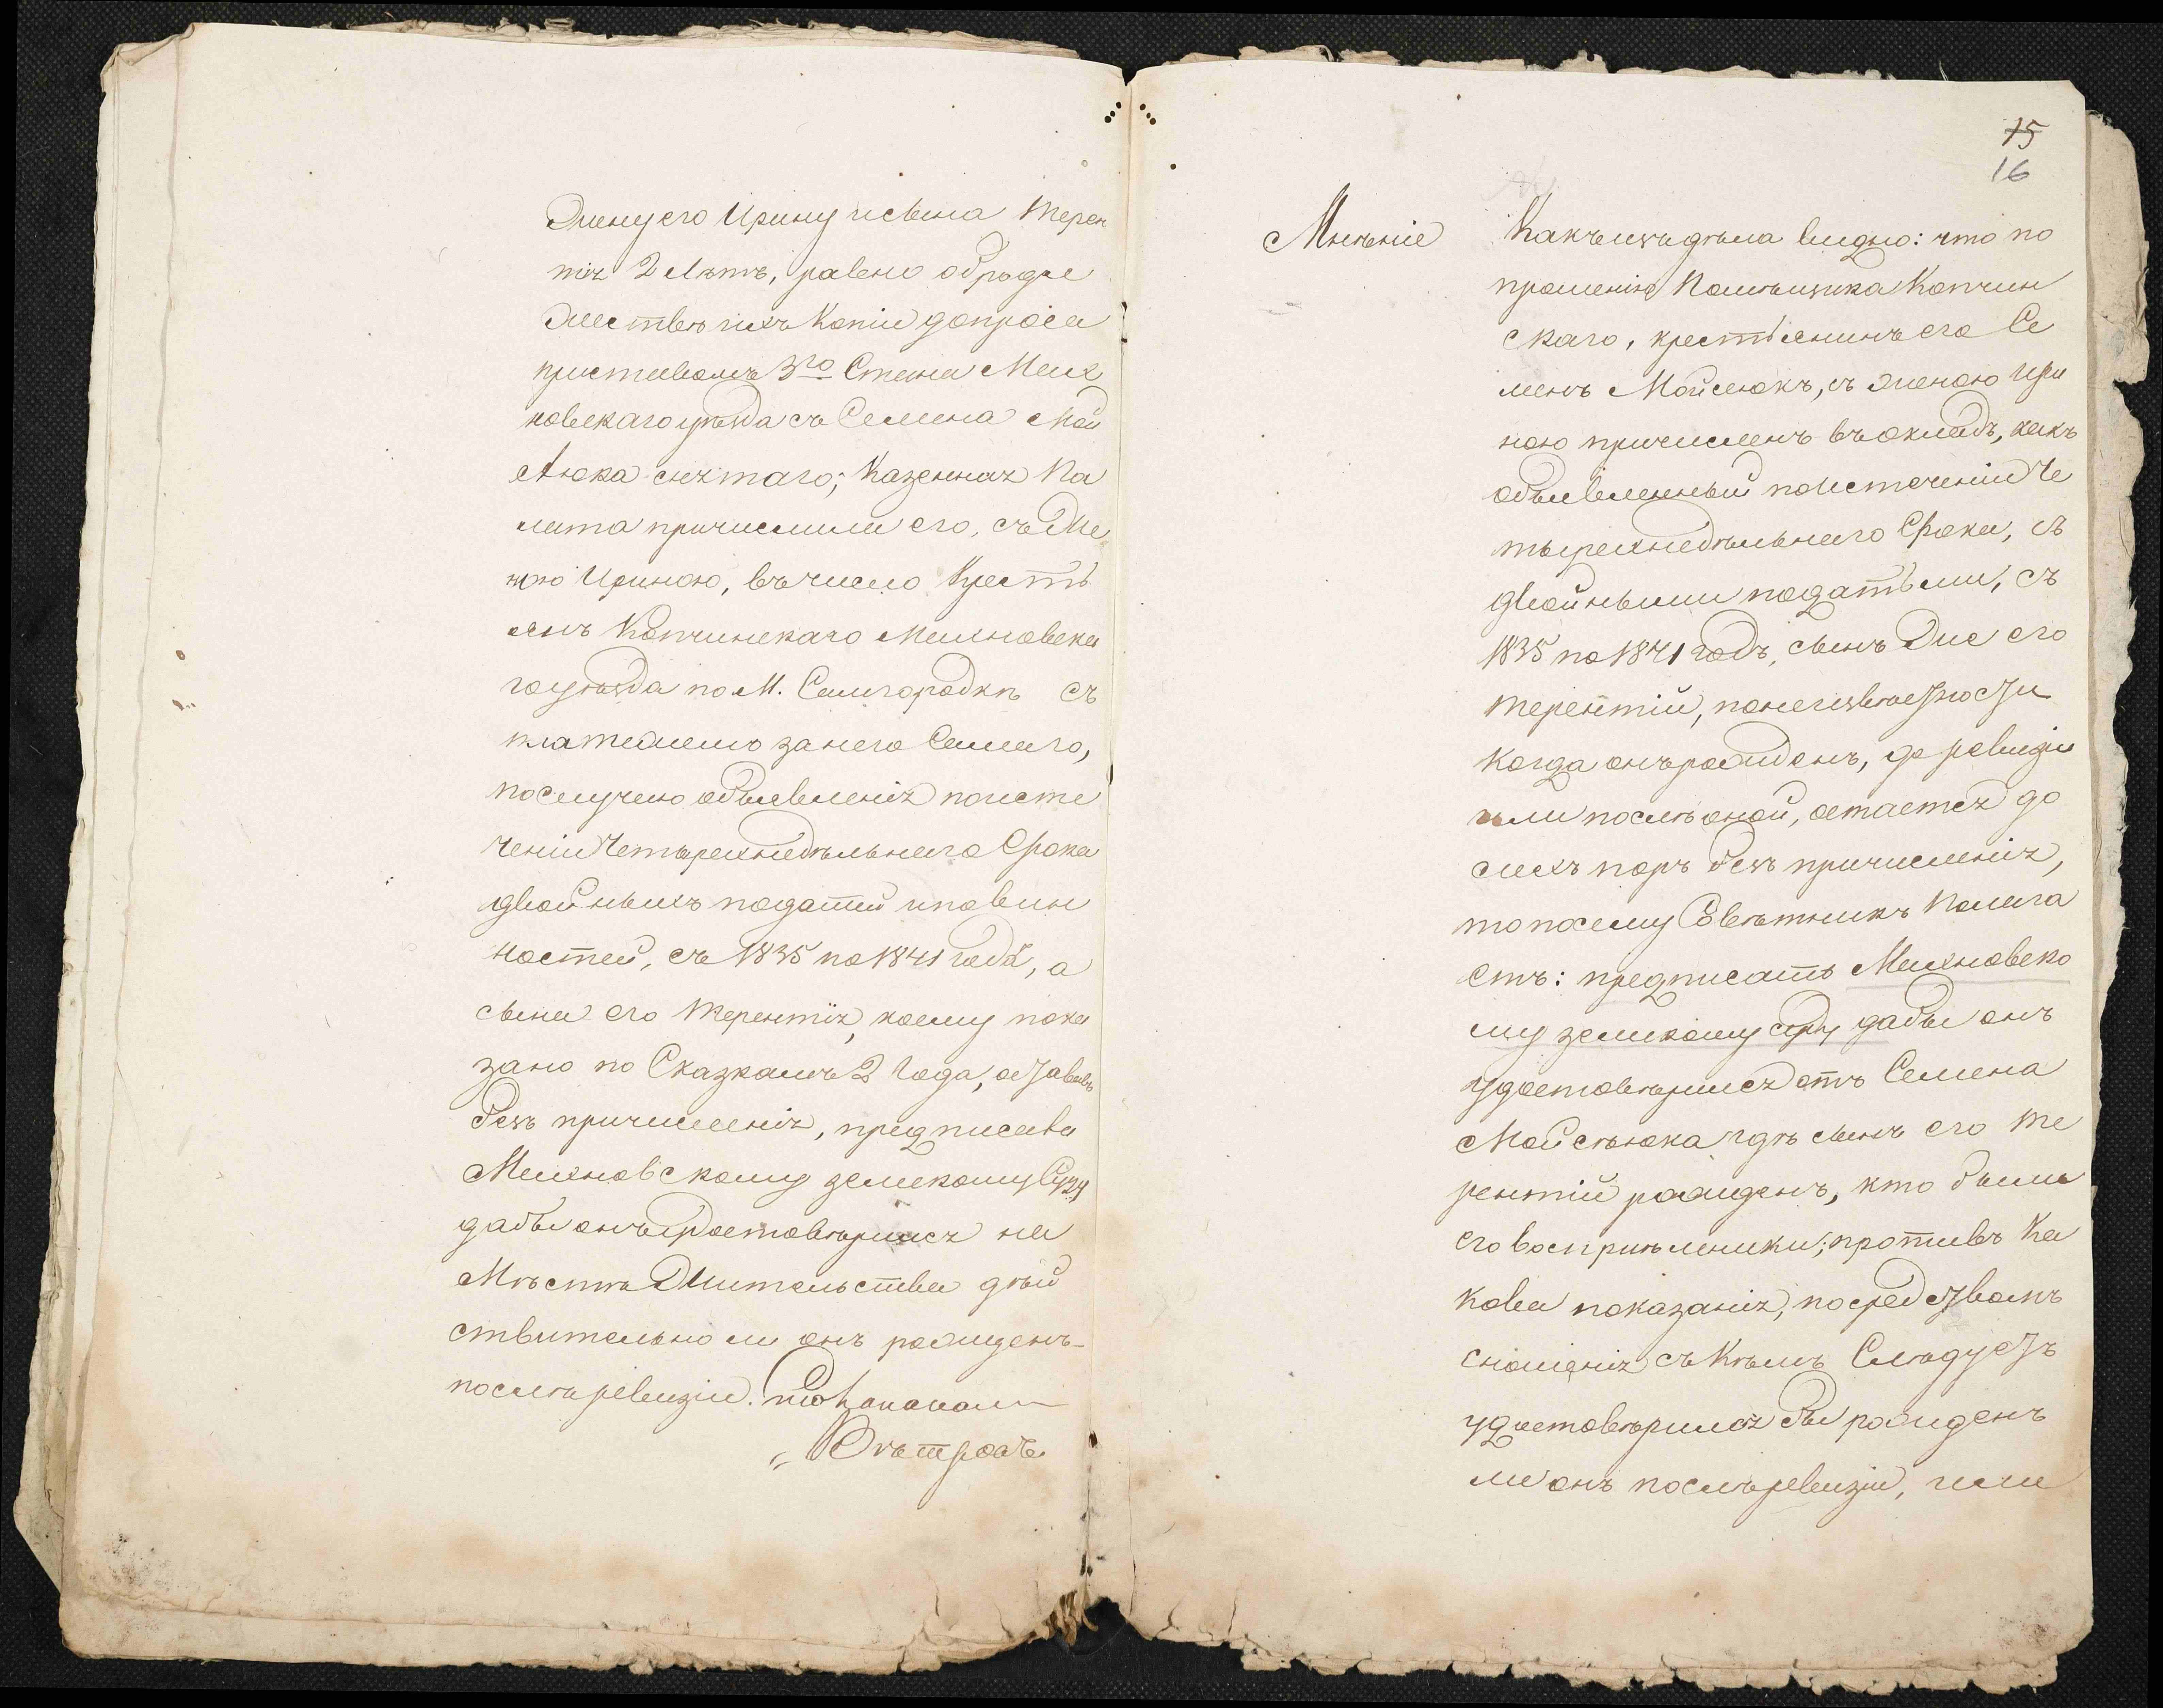 Жену его Ирину исына Терен
тія 2 Лѣтъ, равено обрѣте
Жествѣ ихъ Копіи допроса
приставомъ 3го Стана Мах
новскаго уѣзда съ Семена Мой
сюка снятаго; Казенная Па
лата причислила его, съ Же
ною Ириною, въчисло Кресть
янъ Копчинскаго Махновска
гоуѣзда по М. Самгородкѣ съ
платежемъ занего Самаго,
послучаю объявленія поисте
ченіи Четырехнедѣльнаго Срока
двойныхъ податей иповин
ностей, съ 1835 по 1841 года, а
сына его Терентія, коему пока
зано по Сказкамъ 2 Года, оставивъ
безъ причисленія, предписавъ
Махновскому земскому Суду
дабы онъ удостовѣрился на
Мѣстѣ Жительства дѣй
ствительно ли онъ рожденъ
послѣ ревизіи.
15
16
Мнѣніе
Какъ изъ дѣла видно: что по
прошенію Помѣщика Копчин
скаго, крестьянинъ его Се
менъ Мойсюкъ, съ женою Ири
ною причисленъ въ окладъ, какъ
объявленный поистеченіи Че
тырехнедѣльнаго Срока, съ
двойными податьми, съ
1835 по 1841 годъ, сынъ Же его
Терентій, понеизвѣстности
когда онъ рожденъ, до ревизіи
или послѣ оной, остается до
сихъ поръ безъ причисленія,
то посему Совѣтникъ Полага
етъ: предписать Махновско
му земскому суду дабы онъ
удостовѣрился отъ Семена
Мойсѣюка гдѣ сынъ его Те
рентій рожденъ, кто были
его воспріѣмники; противъ Ка
кова показанія, посредствомъ
сношенія съ Кѣмъ Слѣдуетъ
удостовѣрился бы рожденъ
ли онъ послѣ ревизіи, или